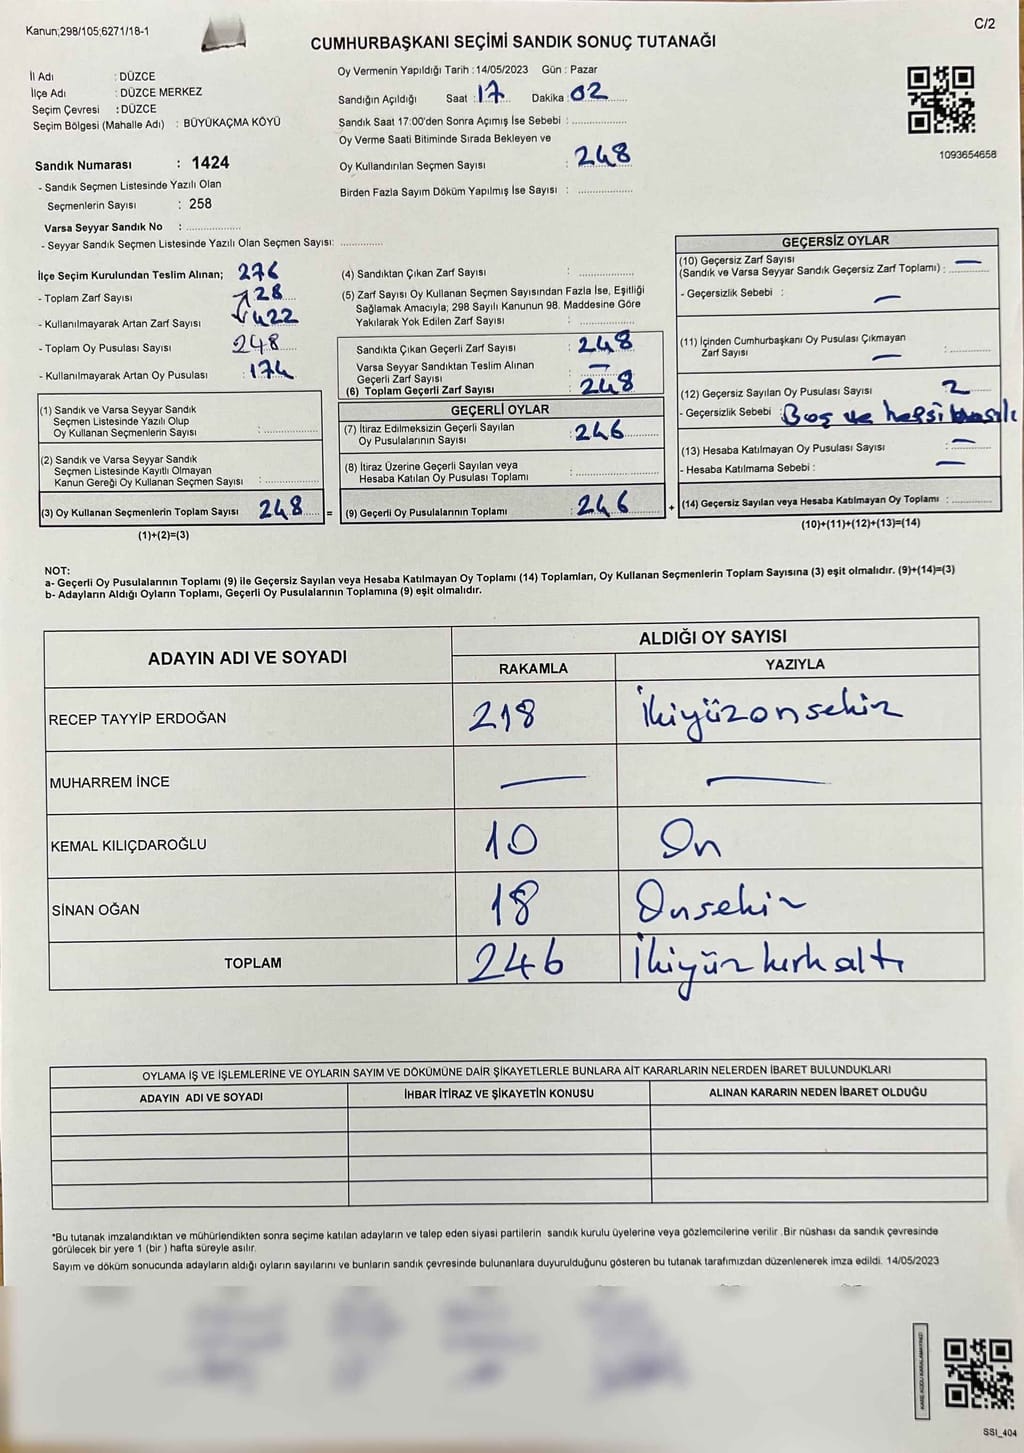 Kanun;298/105;6271/18-1
C/2
CUMHURBAŞKANI SEÇİMİ SANDIK SONUÇ TUTANAĞI
İl Adı : DÜZCE
İlçe Adı : DÜZCE MERKEZ
Seçim Çevresi : DÜZCE
Seçim Bölgesi (Mahalle Adı) : BÜYÜKAÇMA KÖYÜ
Oy Vermenin Yapıldığı Tarih :14/05/2023 Gün : Pazar
Sandığın Açıldığı Saat : 17 Dakika : 02
Sandık Saat 17:00'den Sonra Açımış İse Sebebi :
Oy Verme Saati Bitiminde Sırada Bekleyen ve
Oy Kullandırılan Seçmen Sayısı : 248
Birden Fazla Sayım Döküm Yapılmış İse Sayısı :
1093654658
Sandık Numarası : 1424
- Sandık Seçmen Listesinde Yazılı Olan
Seçmenlerin Sayısı : 258
Varsa Seyyar Sandık No :
- Seyyar Sandık Seçmen Listesinde Yazılı Olan Seçmen Sayısı:
İlçe Seçim Kurulundan Teslim Alınan; 276
- Toplam Zarf Sayısı 28
- Kullanılmayarak Artan Zarf Sayısı 422
- Toplam Oy Pusulası Sayısı 248
- Kullanılmayarak Artan Oy Pusulası : 174
(1) Sandık ve Varsa Seyyar Sandık
Seçmen Listesinde Yazılı Olup
Oy Kullanan Seçmenlerin Sayısı :
(2) Sandık ve Varsa Seyyar Sandık
Seçmen Listesinde Kayıtlı Olmayan
Kanun Gereği Oy Kullanan Seçmen Sayısı :
(3) Oy Kullanan Seçmenlerin Toplam Sayısı 248 =
(1)+(2)=(3)
(4) Sandıktan Çıkan Zarf Sayısı :
(5) Zarf Sayısı Oy Kullanan Seçmen Sayısından Fazla İse, Eşitliği
Sağlamak Amacıyla; 298 Sayılı Kanunun 98. Maddesine Göre
Yakılarak Yok Edilen Zarf Sayısı :
Sandıkta Çıkan Geçerli Zarf Sayısı : 248
Varsa Seyyar Sandıktan Teslim Alınan
Geçerli Zarf Sayısı : —
(6) Toplam Geçerli Zarf Sayısı : 248
GEÇERLİ OYLAR
(7) İtiraz Edilmeksizin Geçerli Sayılan
Oy Pusulalarının Sayısı : 246
(8) İtiraz Üzerine Geçerli Sayılan veya
Hesaba Katılan Oy Pusulası Toplamı :
(9) Geçerli Oy Pusulalarının Toplamı : 246 +
GEÇERSİZ OYLAR
(10) Geçersiz Zarf Sayısı —
(Sandık ve Varsa Seyyar Sandık Geçersiz Zarf Toplamı) :
- Geçersizlik Sebebi : —
(11) İçinden Cumhurbaşkanı Oy Pusulası Çıkmayan
Zarf Sayısı — :
(12) Geçersiz Sayılan Oy Pusulası Sayısı 2
- Geçersizlik Sebebi : Boş ve hepsi basılı
(13) Hesaba Katılmayan Oy Pusulası Sayısı : —
- Hesaba Katılmama Sebebi : —
(14) Geçersiz Sayılan veya Hesaba Katılmayan Oy Toplamı :
(10)+(11)+(12)+(13)=(14)
NOT:
a- Geçerli Oy Pusulalarının Toplamı (9) ile Geçersiz Sayılan veya Hesaba Katılmayan Oy Toplamı (14) Toplamları, Oy Kullanan Seçmenlerin Toplam Sayısına (3) eşit olmalıdır. (9)+(14)=(3)
b- Adayların Aldığı Oyların Toplamı, Geçerli Oy Pusulalarının Toplamına (9) eşit olmalıdır.
ADAYIN ADI VE SOYADI
ALDIĞI OY SAYISI
RAKAMLA YAZIYLA
RECEP TAYYİP ERDOĞAN 218 İkiyüzonsekiz
MUHARREM İNCE — —
KEMAL KILIÇDAROĞLU 10 On
SİNAN OĞAN 18 Onsekiz
TOPLAM 246 İkiyüzkırkaltı
OYLAMA İŞ VE İŞLEMLERİNE VE OYLARIN SAYIM VE DÖKÜMÜNE DAİR ŞİKAYETLERLE BUNLARA AİT KARARLARIN NELERDEN İBARET BULUNDUKLARI
ADAYIN ADI VE SOYADI İHBAR İTİRAZ VE ŞİKAYETİN KONUSU ALINAN KARARIN NEDEN İBARET OLDUĞU
*Bu tutanak imzalandıktan ve mühürlendikten sonra seçime katılan adayların ve talep eden siyasi partilerin sandık kurulu üyelerine veya gözlemcilerine verilir .Bir nüshası da sandık çevresinde
görülecek bir yere 1 (bir ) hafta süreyle asılır.
Sayım ve döküm sonucunda adayların aldığı oyların sayılarını ve bunların sandık çevresinde bulunanlara duyurulduğunu gösteren bu tutanak tarafımızdan düzenlenerek imza edildi. 14/05/2023
SSI_404